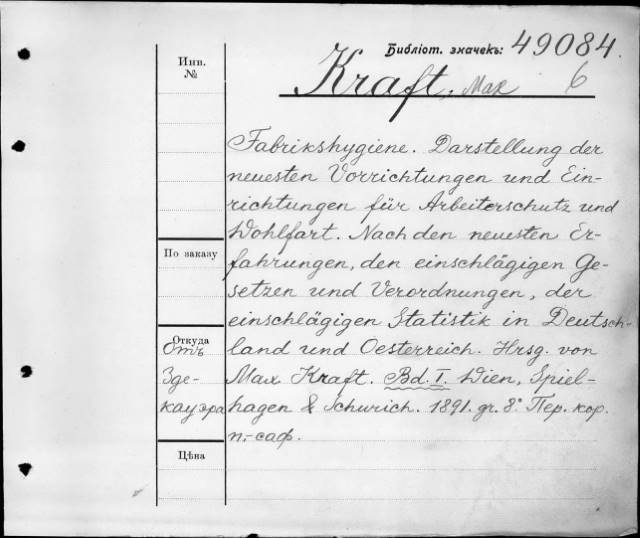 Библіот. значекъ: 49084.
Инв.
№
Kraft, Max 6
Fabrikshygiene. Darstellung der
neuesten Vorrichtungen und Ein-
richtungen für Arbeiterschutz und
Wohlfart. Nach den neuesten Er-
По заказу
fahrungen, den einschlägigen Ge-
setzen und Verordnungen, der
einschlägigen Statistik in Deutsch-
Откуда
Отъ
land und Oesterreich. Hrsg. von
Зде-
Max Kraft. Bd. I. Wien, Spiel-
кауэра
hagen & Schurich. 1891. gr. 8° Пер. кор.
п.-саф.
Цѣна